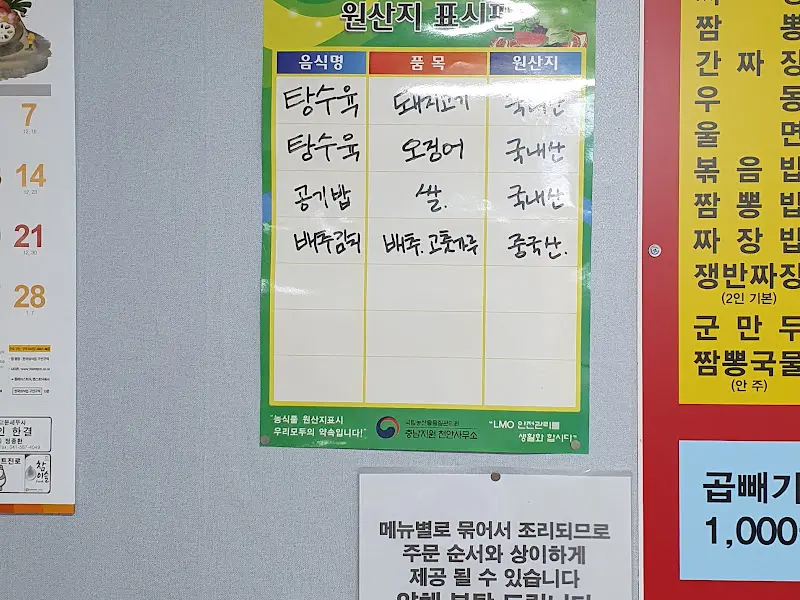 원산지 표시판
음식명 품목 원산지
탕수육 돼지고기 국내산
탕수육 오징어 국내산
공기밥 쌀. 국내산
배추김치 배추. 고춧가루 중국산.
"농식품 원산지표시
우리모두의 약속입니다!"
국립농산물품질관리원
충남지원 천안사무소
"LMO 안전관리를
생활화 합시다"
메뉴별로 묶어서 조리되므로
주문 순서와 상이하게
제공 될 수 있습니다
양해 부탁 드립니다
7
14
21
28
인 한결
참이슬
짬 뽕
간 짜 장
우 동
울 면
볶 음 밥
짬 뽕 밥
짜 장 밥
쟁반짜장
(2인 기본)
군 만 두
짬뽕국물
(안 주)
곱빼기
1,000